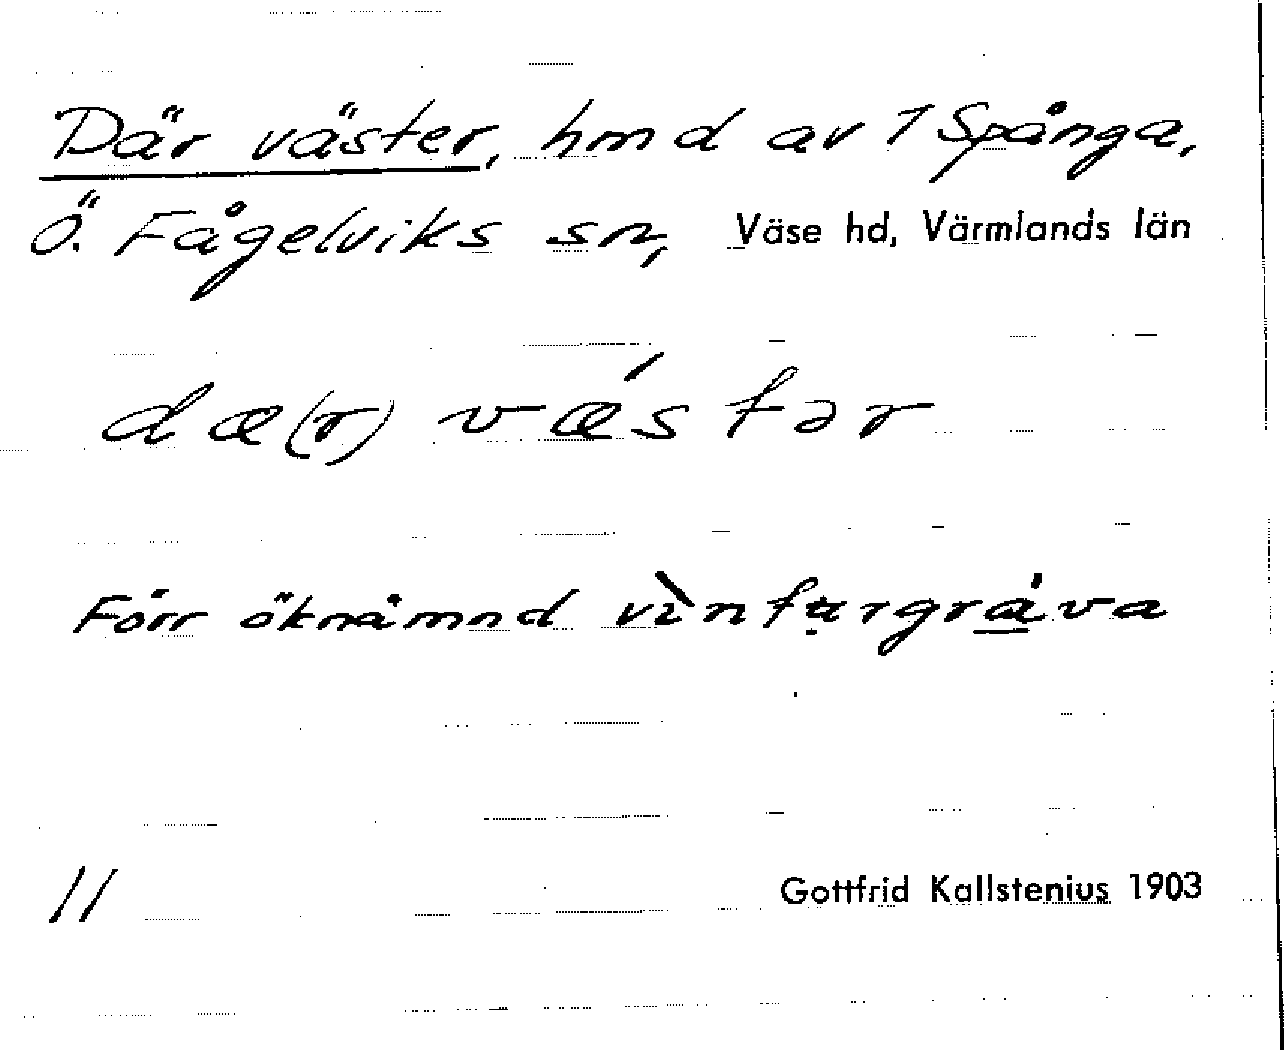 Där väster, hmd av 1 Spånga,
Ö. Fågelviks sn, Väse hd, Värmlands län
dæ(r) vǽstər
Förr öknämnd vìntụrgrá̱va
11 Gottfrid Kallstenius 1903